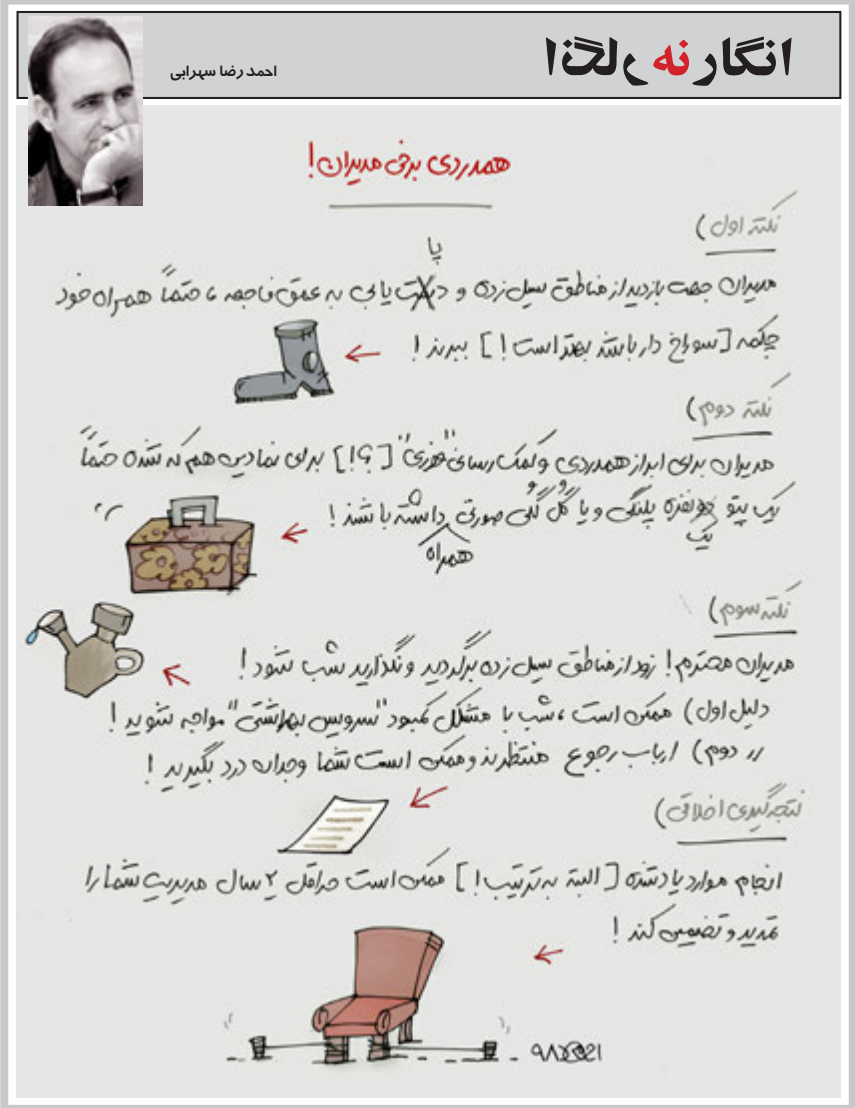 انگار نه انگار
احمد رضا سهرابی
همدردی برخی مدیران!
نکته اول)
پا
مدیران جهت بازدید از مناطق سیل زده و دست یابی به عمق فاجعه، حتماً همراه خود
چکمه [سوراخ دار باشد بهتر است!] ببرند!
نکته دوم)
مدیران برای ابراز همدردی و کمک رسانی "فوری" [؟!] برای نمادین هم که شده حتماً
یک پتو دو نفره پلنگی و یا گُل گُلی صورتی داشته باشند!
یک
همراه
نکته سوم)
مدیران محترم! زود از مناطق سیل زده برگردید و نگذارید شب شود!
دلیل اول) ممکن است، شب با مشکل کمبود "سرویس بهداشتی" مواجه شوید!
〃 دوم) ارباب رجوع منتظرند و ممکن است شما وجدان درد بگیرید!
نتیجه گیری اخلاقی)
انجام موارد یاد شده [البته به ترتیب!] ممکن است حداقل ۲ سال مدیریت شما را
تمدید و تضمین کند!